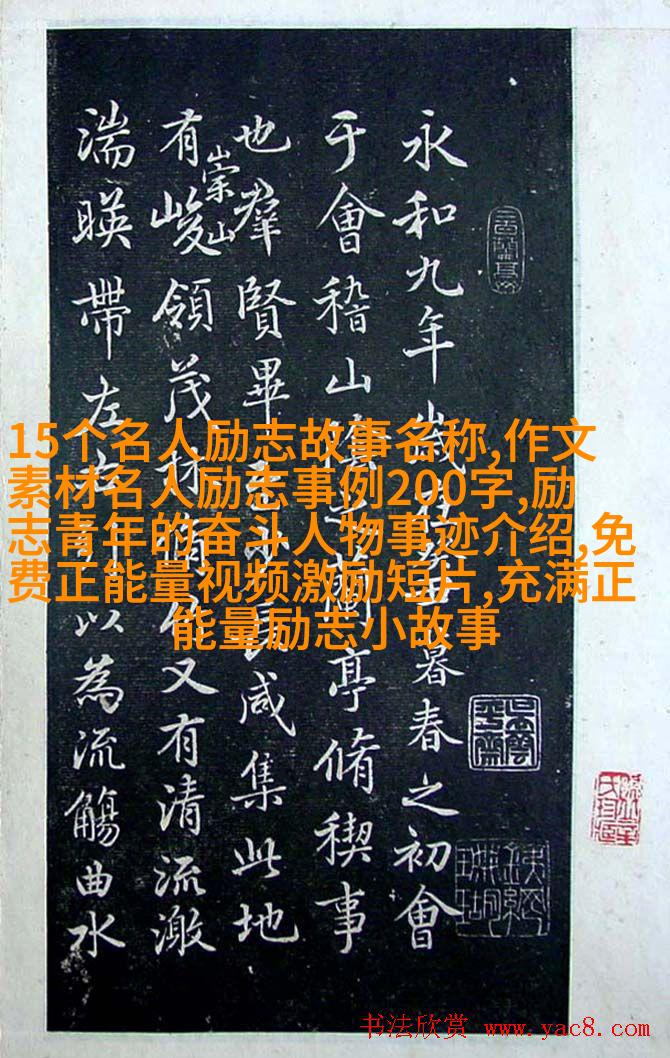 永和九年歲在暮春之初會
于會稽山陰之蘭亭脩稧事
也羣賢畢至長咸集此地
有崇山峻領茂林脩竹又有清流激
湍暎帶左以為流觴曲水
15个名人励志故事名称,作文
素材名人励志事例200字,励
志青年的奋斗人物事迹介绍,免
费正能量视频激励短片,充满正
能量励志小故事
书法欣赏 www.yac8.com